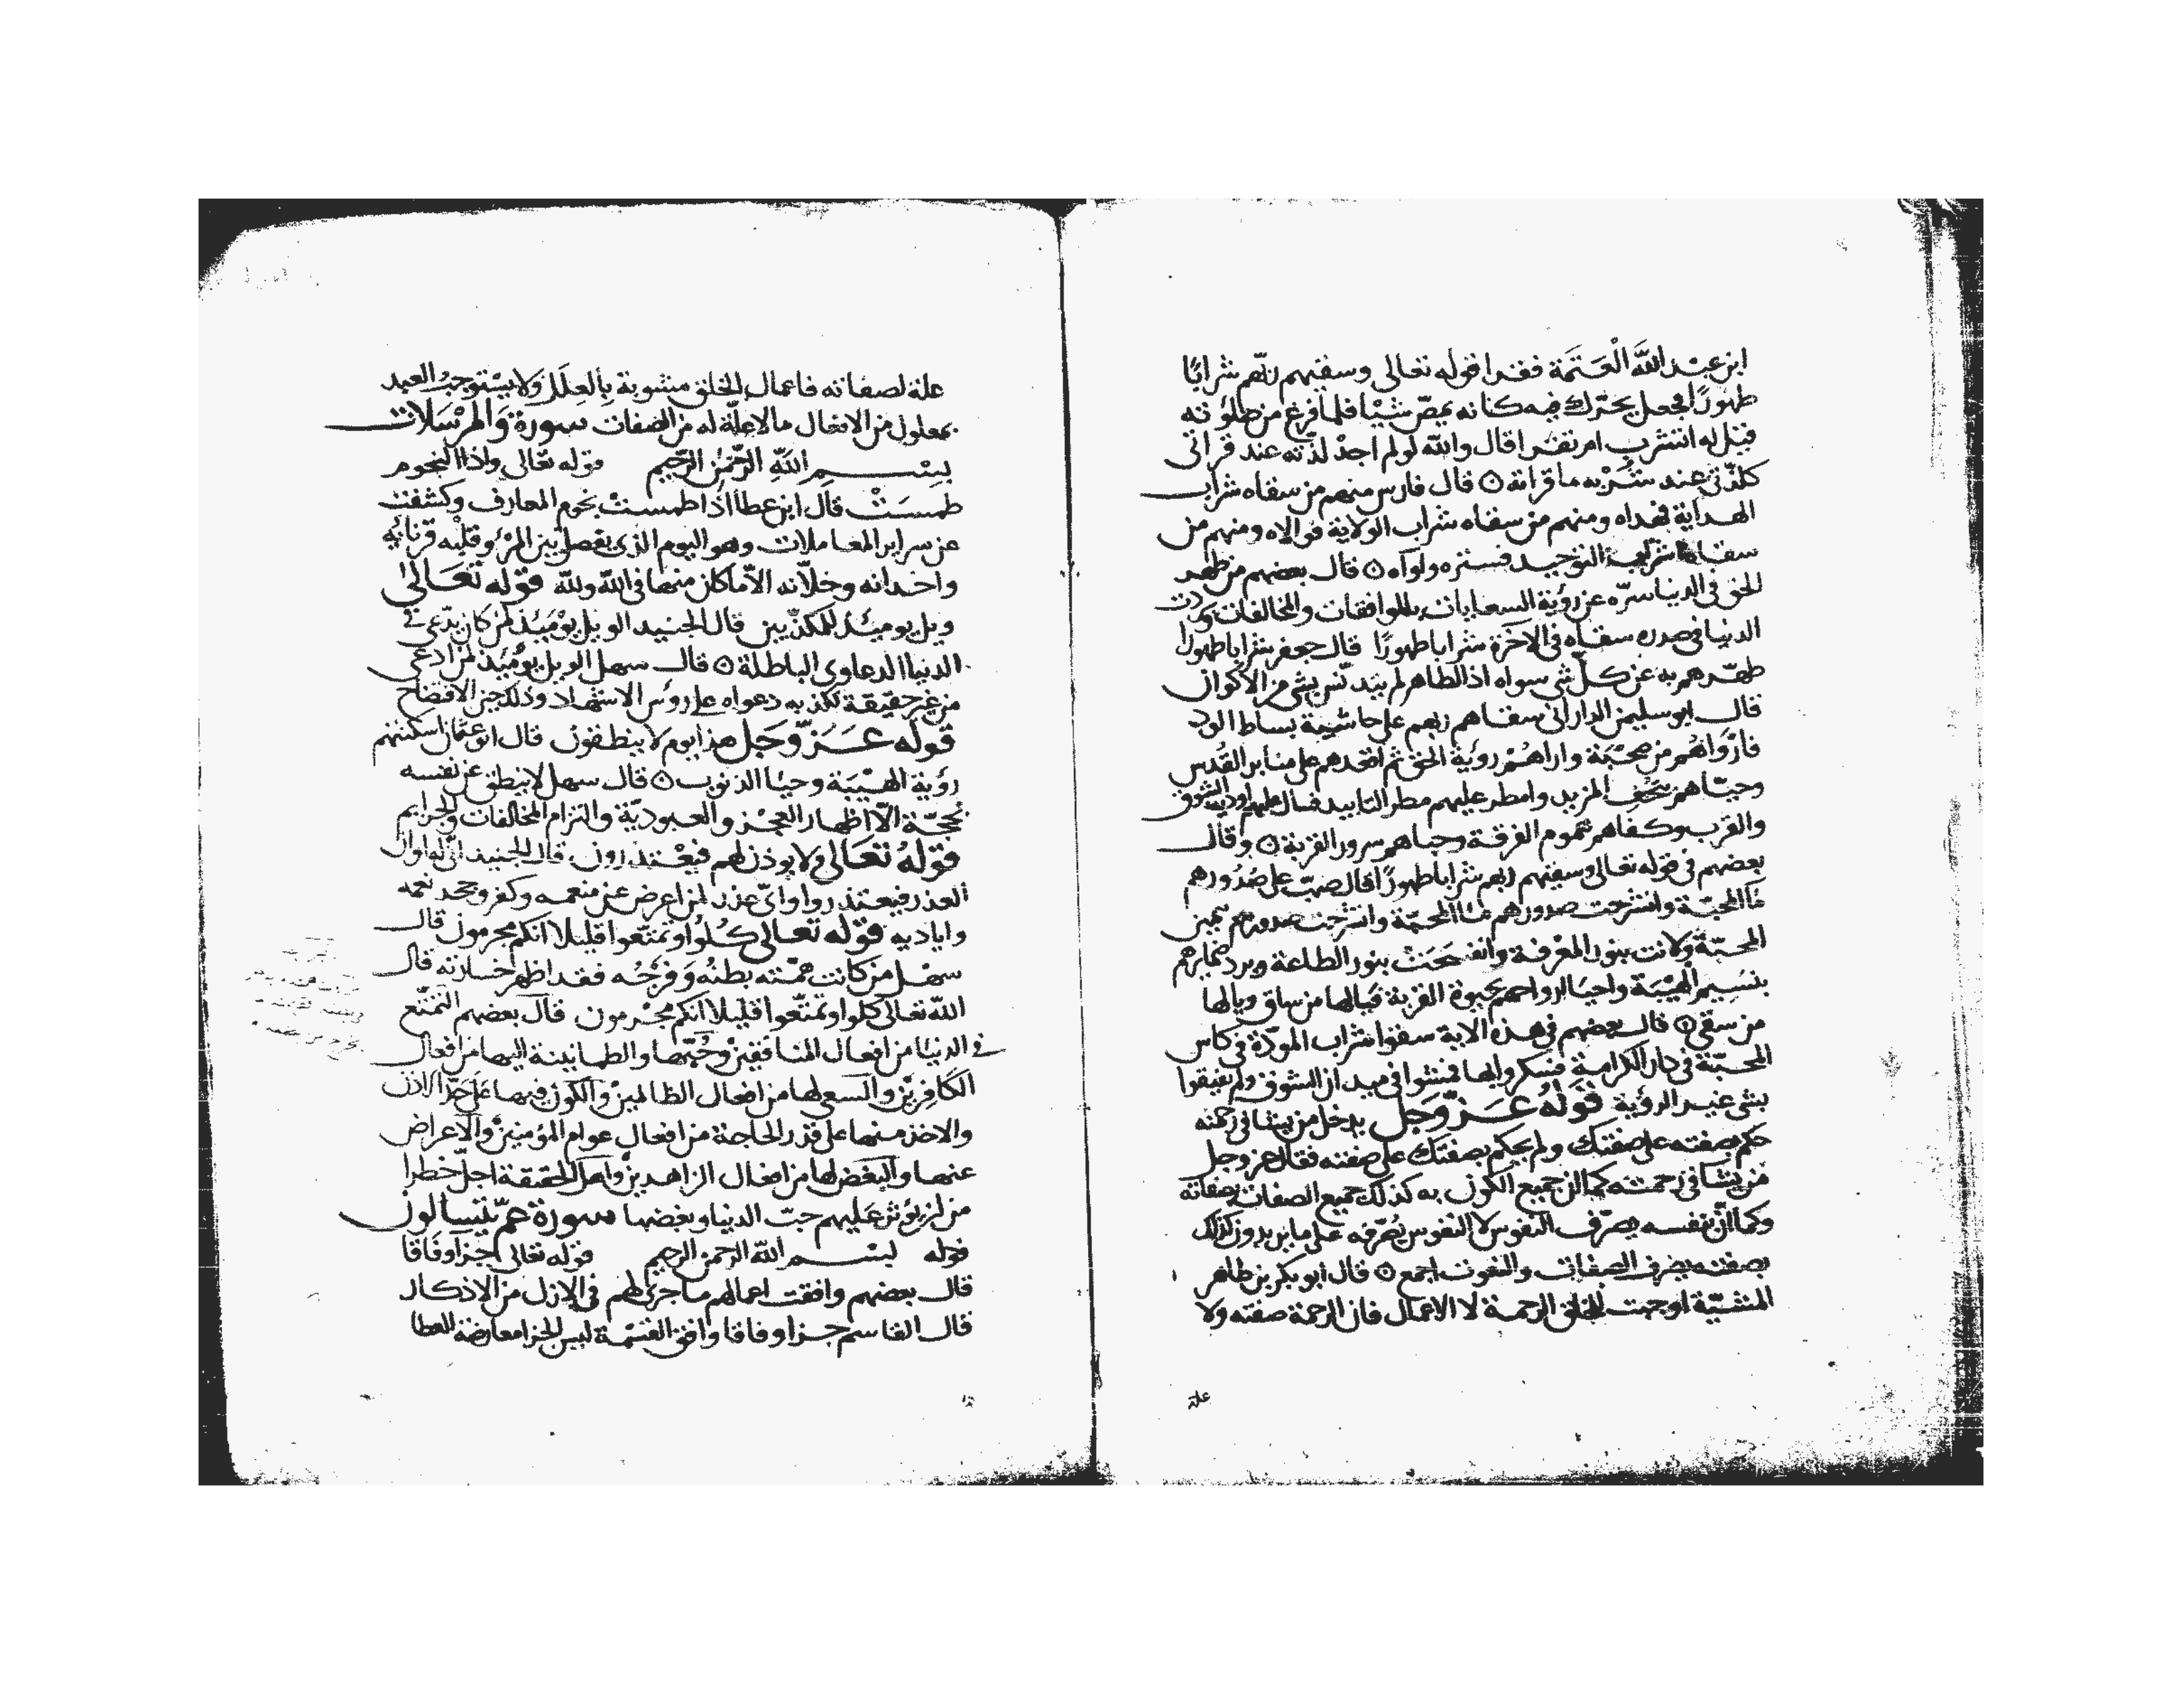 ابن عبد اللّه الْعَتَمَة فقرا قوله تعالى وسقيهم ربّهم شرابًا
طهورًا فجعل يحرّك فيه كانه يمصّ شيْا فلما فرغ من صلوته
قيل له اتشرب ام تقرا قال واللّه لو لم اجدْ لذّته عند قراتى
كلذّتى عند شُرْبه ما قراته ۞ قال فارس منهم من سقاه شراب
الهداية فهداه ومنهم من سقاه شراب الولاية فوالاه ومنهم من
سقاه شراب التوحيد فستره واواه ۞ قال بعضهم من طهر
الحق فى الدنيا سرّه عن رؤية السعايات بالموافقات والمخالفات وبردت
الدنيا فى صدره سقاه فى الآخرة شرابا طهورًا قال جعفر شرابا طهورا
طهّرهم به عن كلّ شى سواه اذ لا طاهر لم يتدنّس بشى من الاكوان
قال ابو سليمن الدارانى سقاهم ربهم على حاشية بساط الود
فارْوَاهُم من صحْبَة واراهُمْ رؤية الحق ثم اقعدهم على منابر القُدس
وحيّاهم بتُحَفِ المزيد وامطر عليهم مطر التاييد فسال عليهم اودية الشوق
والقرب وكفاهم هموم الفرقة وحباهم سرور القربة ۞ وقال
بعضهم فى قوله تعالى وسقيهم ربهم شرابا طهورًا قال صبّ على صُدُورهم
مَا المحبّة وانشرحت صدورهم بماا لمحبّة وانشرحت صدورهم بمين
المحبّة ولانت بنور المعْرفة وانفتحتْ بنور الطاعة وبرد ضمايرهم
بنسيم الهيْبَة واحيَا ارواحهم بحيوة القربة فيالها من ساق ويالها
من سقى ۞ قال بعضهم فى هذه الاية سقوا شراب المودّة فى كاس
المحبّة فى دار الكرامة فسكروا بها فمشوا فى ميدان الشوق ولم يفيقوا
بشى غير الرؤية قَولُه عَزّ وَجَل يدخل من يشا فى رحمته
حكم بصفته على صفتك ولم يحكم بصفتك على صفته فقال عز وجل
من يشا فى رحمته كما ان جميع الكون به كذلك جميع الصفات بصفاته
وكما انّ بنفسه يصرّف النفوس لا النفوس تُصَرّفه على ما يريدون كذلك
بصفته يصرف الصفات والنعوت اجمع ۞ قال ابو بكر بن طاهر
المشيّة اوجبت للخلق الرحمة لا الاعمال فان الرحمة صفته ولا
علة
علة لصفاته فاعمال الخلق مشوبة بِالعِلَل ولا يسْتوجبُ العبد
بمعلول من الافعال ما لا علّة له من الصفات سورة وَالمرْسَلات
بسْم اللّهِ الرّحمٰن الرّحيم قوله تعَالى واذا النجوم
طمسَتْ قال ابن عطا اذا طمستْ نجوم المعارف وكشفت
عن سراير المعاملات وهو اليوم الذى يفصل بين المرْء وقلْبه وقرنائه
واخدانه وخلّانه الّا ما كان منها فى اللّه وللّه قوْله تعَالى
ويل يومئذ للمكذّبين قال الجنيد الويل يوْمَئذ لمن كان يدّعى فى
الدنيا الدعاوى الباطلة ۞ قال سهل الويل يوْمئذ لمن ادعى
من غير حقيقة تكذبه دعواه على رؤس الاشهاد وذلك حين الافتضاح
قوله عَزّ وجَل هذا يوم لا ينطقون قال ابو عثمان اسكتتهم
رؤية الهيْبَة وحيا الذنوب ۞ قال سهل لا ينطق عن نفسه
بحجّة الّا اظهار العجْز والعبوديّة والتزام المخالفات والجرايم
قوْلهُ تعَالى ولا يوذن لهم فيعْتذرون قال الجنيد انّى له اوان
العذر فيعتذروا واىّ عذر لمن اعرض عن منعمه وكفر وجحد نعمه
واياديه قوْله تعالى كلوُا وتمتّعوا قليلا انكم مجرمون قال
سهْل من كانت همّته بطنُه وفرْجُه فقد اظهر خسارته قال
اللّه تعالى كلوا وتمتّعوا قليلا انكم مجْرمون قال بعضهم التمتّع
فى الدنيا من افعال المنافقين وحُبّها والطمانينة اليها من افعال
الكافرين والسعى لها من افعال الظالمين والكون فيها على حدّ الاذن
والاخذ منها على قدر الحاجة من افعال عوام المؤمنين والاعراض
عنها والبغض لها من افعال الزاهدين واهل الحقيقة اجلّ خطرا
من ان يؤثر عَليهم حبّ الدنيا وبغضها سورة عمّ يَتَسالون
قوله بسْم اللّه الرحمن الرحيم قوْله تعالى اجزا وفَاقا
قال بعضهم وافقت اعمالهم ما جرى لهم فى الازل من الاذكار
قال القاسم جزا وفاقا وافق القسْمة ليس الجزا معارضة للعطا